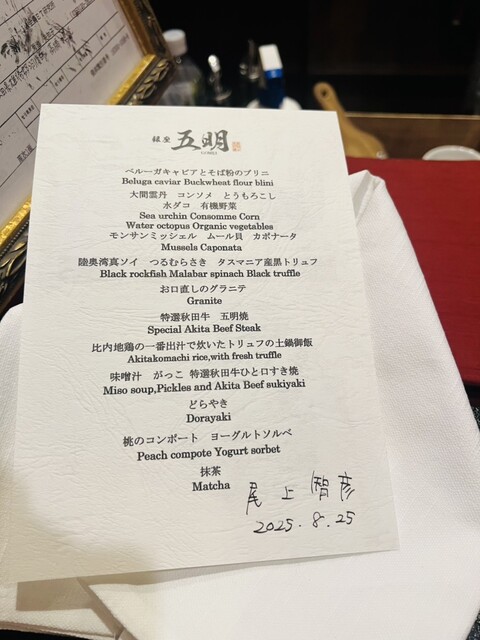 銀座 五明
GOMEI
ベルーガキャビアとそば粉のブリニ
Beluga caviar Buckwheat flour blini
大間雲丹　コンソメ　とうもろこし
水ダコ　有機野菜
Sea urchin Consomme Corn
Water octopus Organic vegetables
モンサンミッシェル　ムール貝　カポナータ
Mussels Caponata
陸奥湾真ソイ　つるむらさき　タスマニア産黒トリュフ
Black rockfish Malabar spinach Black truffle
お口直しのグラニテ
Granite
特選秋田牛　五明焼
Special Akita Beef Steak
比内地鶏の一番出汁で炊いたトリュフの土鍋御飯
Akitakomachi rice,with fresh truffle
味噌汁　がっこ 特選秋田牛ひと口すき焼
Miso soup,Pickles and Akita Beef sukiyaki
どらやき
Dorayaki
桃のコンポート　ヨーグルトソルベ
Peach compote Yogurt sorbet
抹茶
Matcha
尾上 智彦
2025.8.25